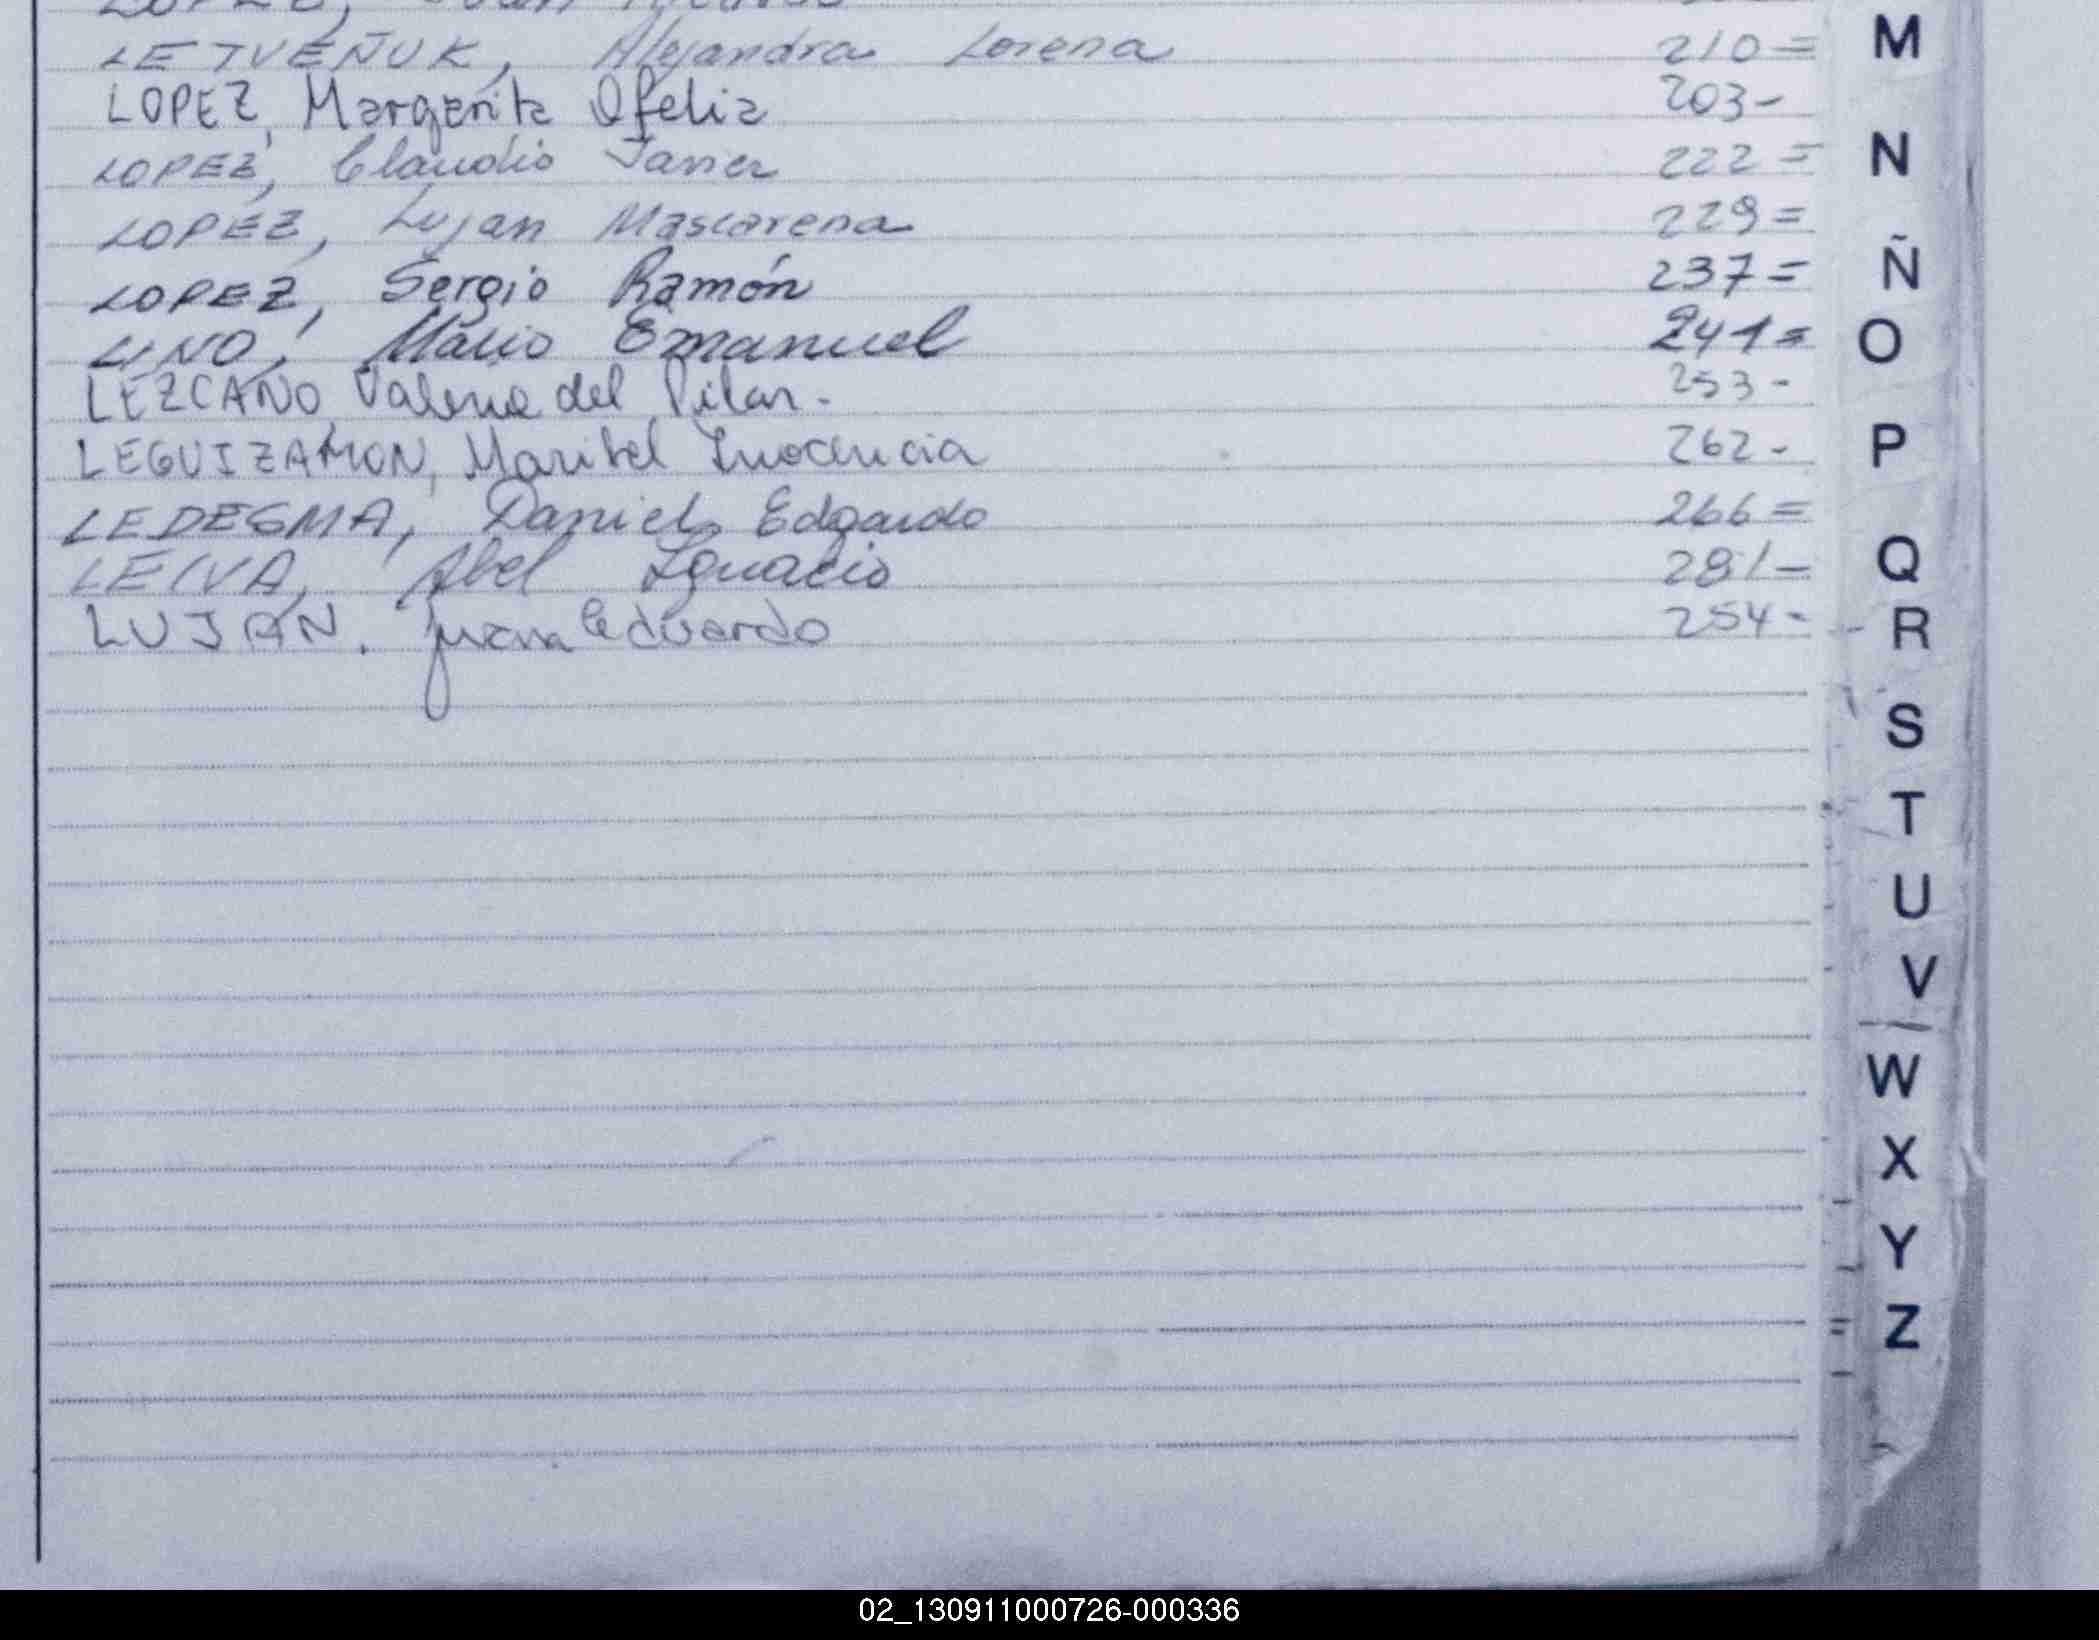 LOPEZ, Juan
LETVEÑUK, Alejandra Lorena 210=
LOPEZ, Margarita Ofelia 203-
LOPEZ, Claudio Javier 222=
LOPEZ, Lujan Mascarena 229=
LOPEZ, Sergio Ramón 237=
LINO, Mario Emanuel 241=
LEZCANO, Valeria del Pilar. 253-
LEGUIZAMON, Maribel Inocencia 262-
LEDESMA, Daniel Edgardo 266=
LEIVA, Abel Ignacio 281-
LUJAN. Juan Eduardo 254-
M
N
Ñ
O
P
Q
R
S
T
U
V
W
X
Y
Z
02_130911000726-000336